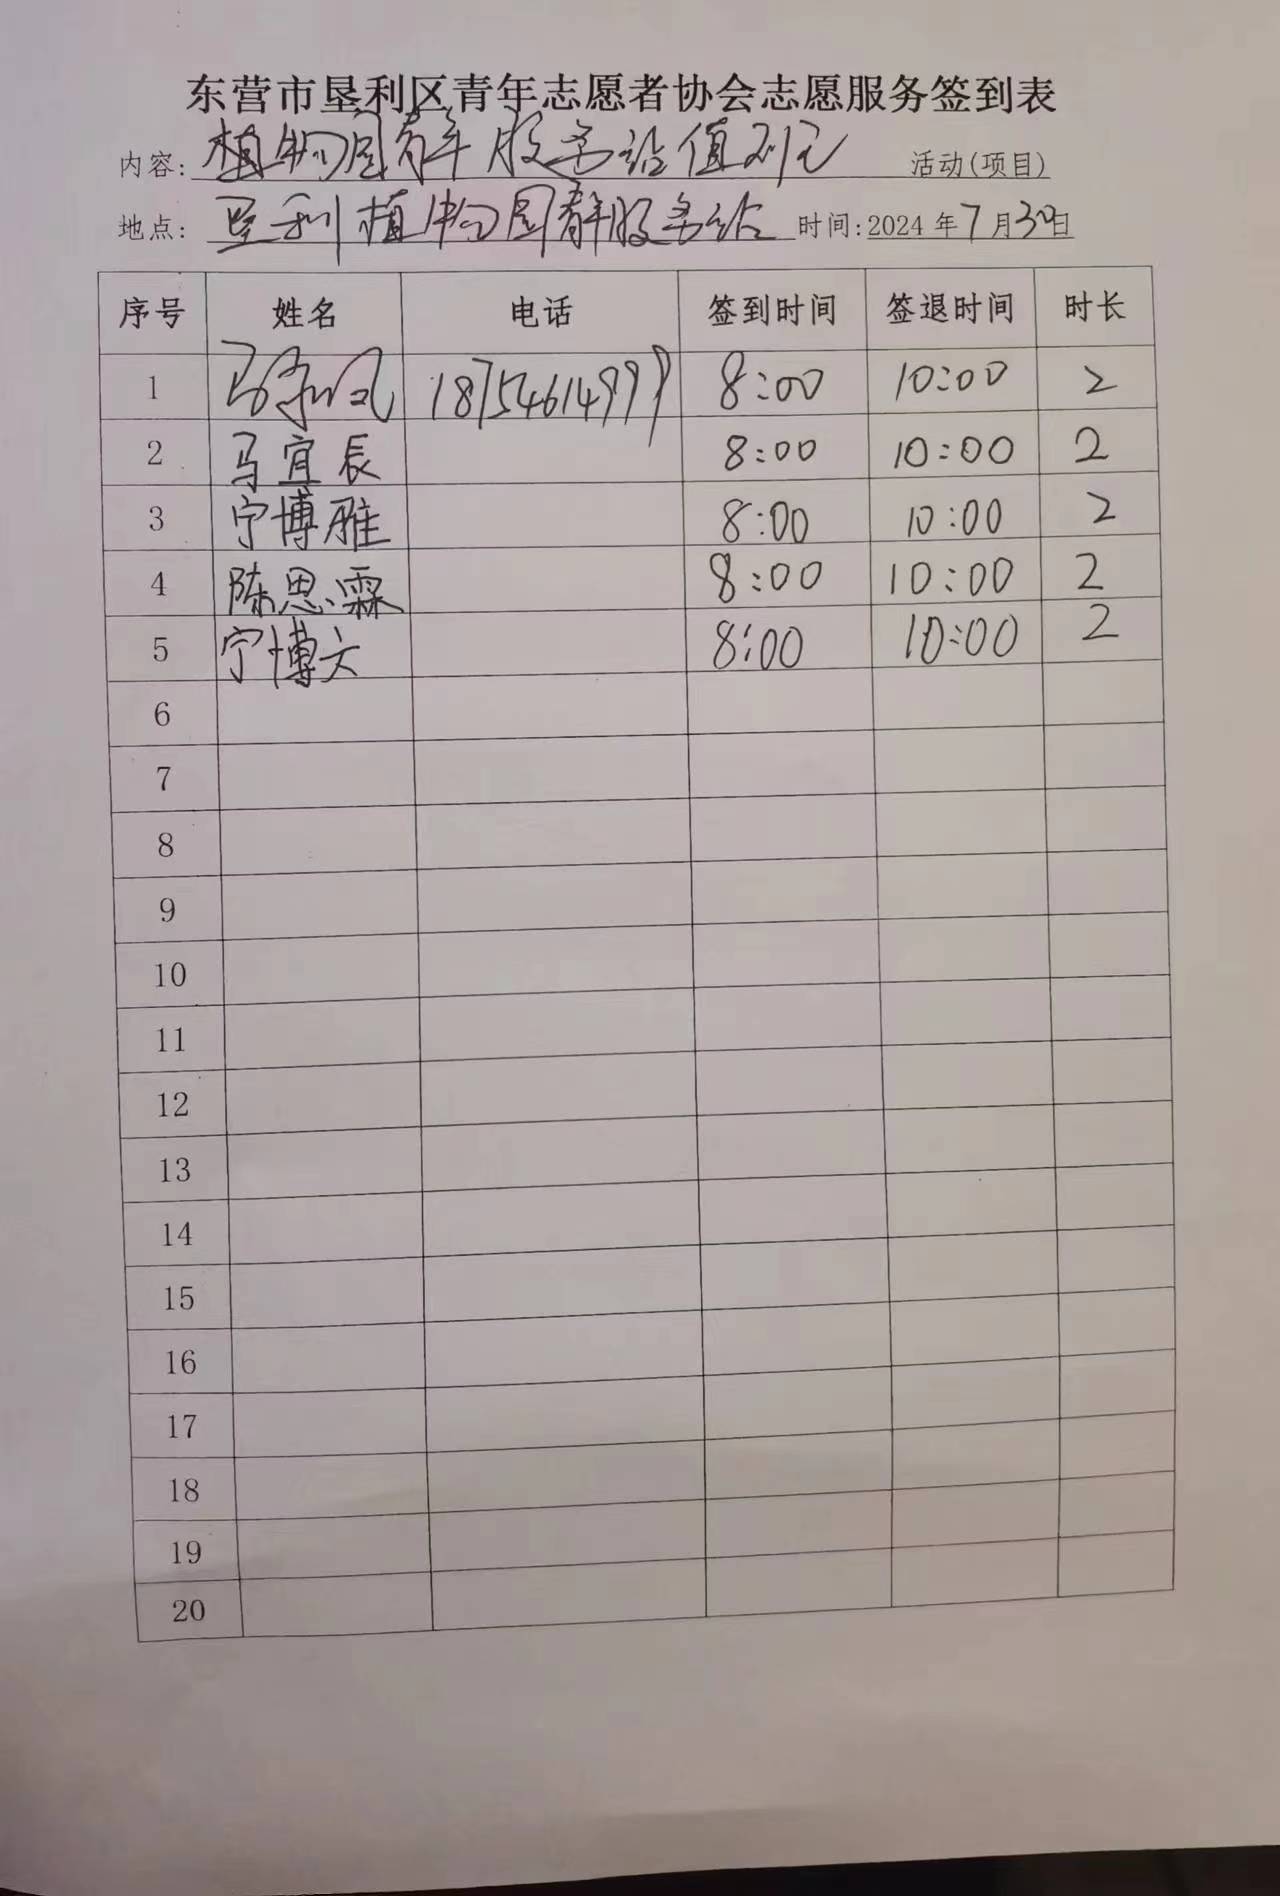 东营市垦利区青年志愿者协会志愿服务签到表
内容: 植物园群众服务站值班 活动(项目)
地点: 垦利植物园群服务站 时间:2024年7月30日
序号 姓名 电话 签到时间 签退时间 时长
1 马 18754614999 8:00 10:00 2
2 马宜辰 8:00 10:00 2
3 宁博雅 8:00 10:00 2
4 陈思霖 8:00 10:00 2
5 宁博文 8:00 10:00 2
6
7
8
9
10
11
12
13
14
15
16
17
18
19
20